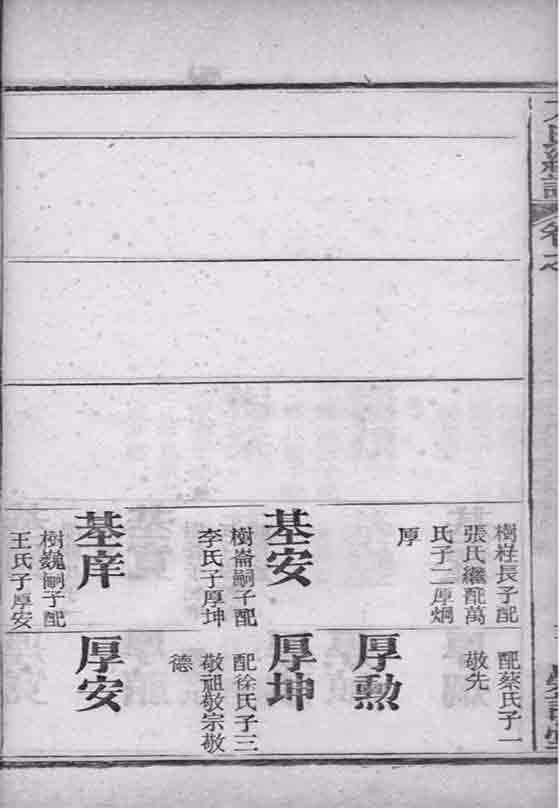 樹柱長子配
張氏繼配萬
氏子二厚炯
厚
基安
樹崙嗣子配
李氏子厚坤
基庠
樹巍嗣子配
王氏子厚安
配蔡氏子一
敬先
厚勳
厚坤
配徐氏子三
敬祖敬宗敬
德
厚安